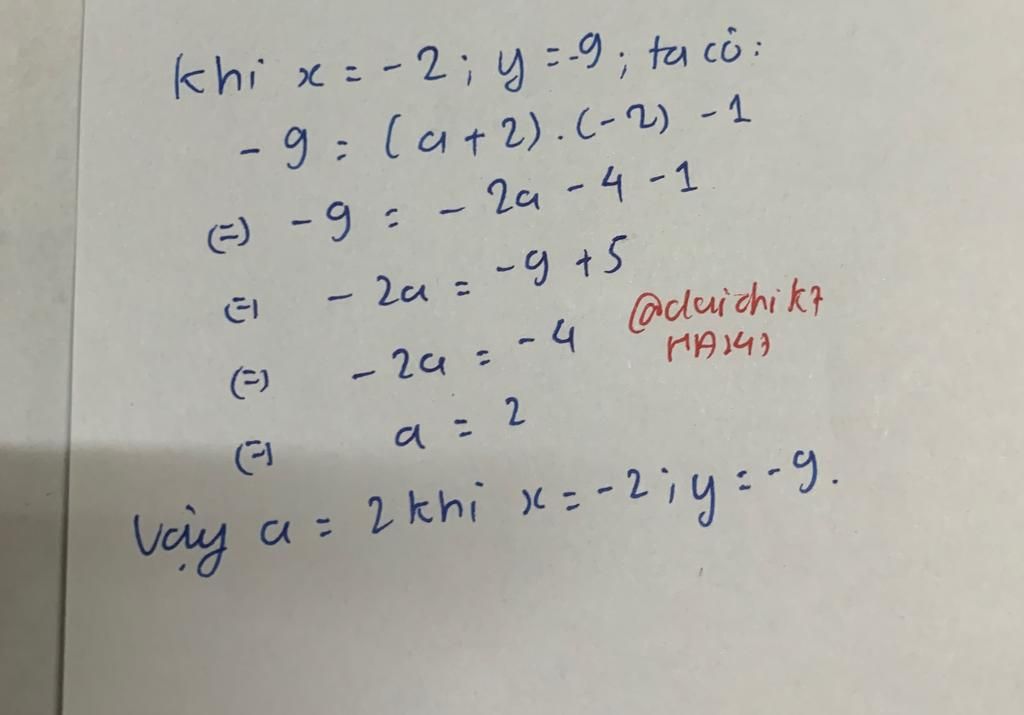 Khi x = -2; y = -9; ta có:
-9 = (a+2).(-2) -1
(=) -9 = -2a -4 -1
(=) -2a = -9 +5
(=) -2a = -4
@daichik7
(=) a = 2
Vậy a = 2 khi x = -2; y = -9.